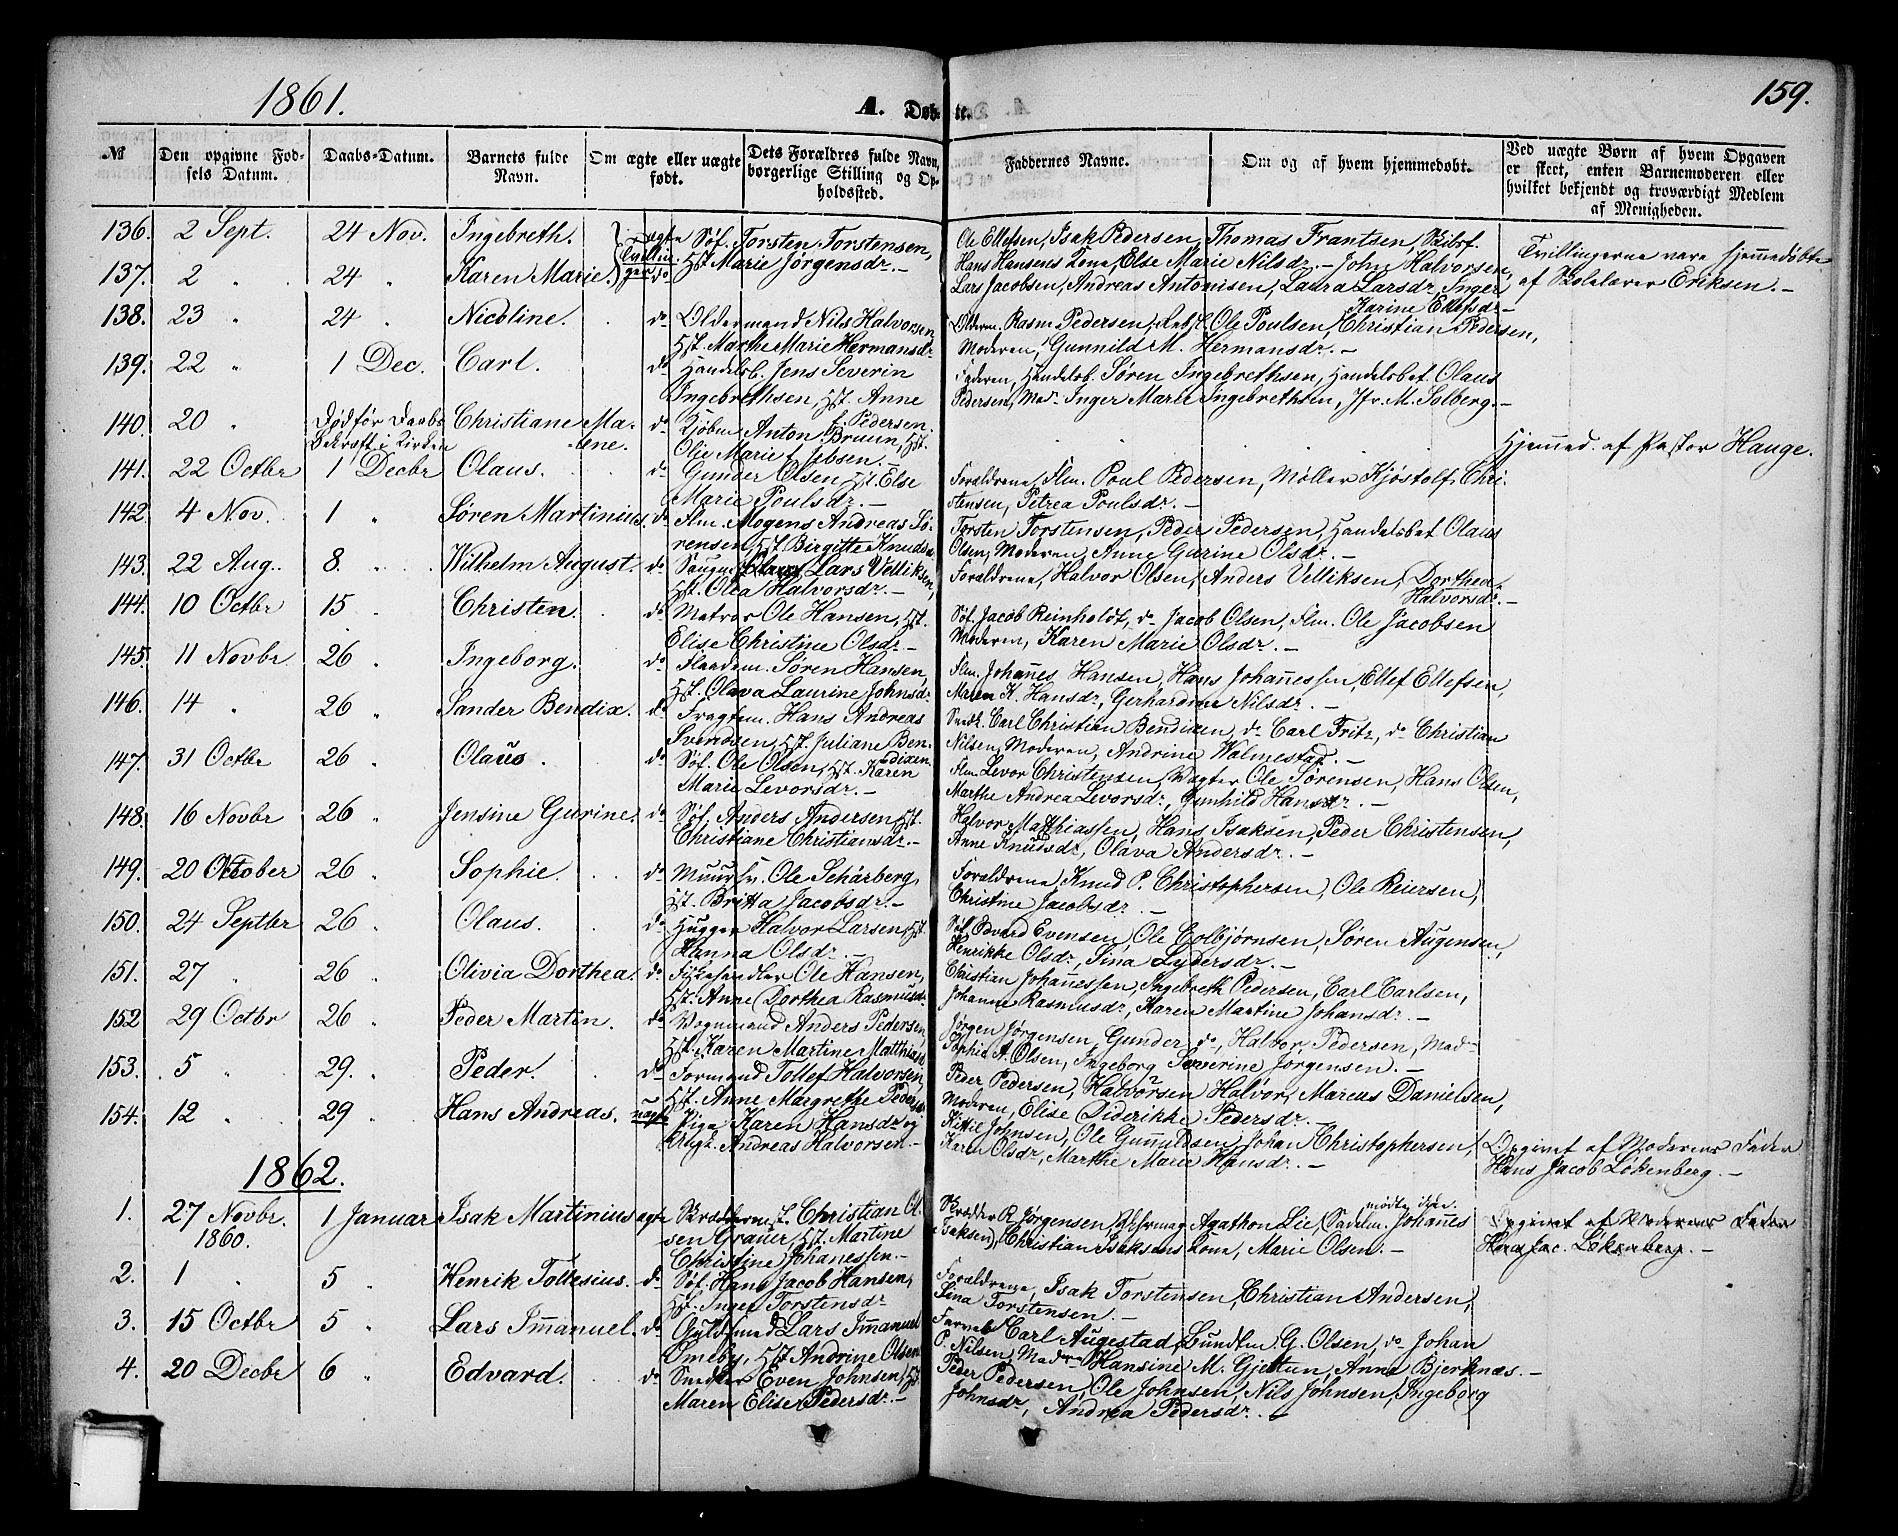 1861.
A. Døbte.
159.
№
Den opgivne Fødsels Datum.
Daabs-Datum.
Barnets fulde Navn.
Om ægte eller uægte født.
Dets Forældres fulde Navn, borgerlige Stilling og Opholdssted.
Faddernes Navne.
Om og af hvem hjemmedøbt.
Ved uægte Børn af hvem Opgaven er skeet, enten Barnemoderen eller hvilket bekjendt og troværdigt Medlem af Menigheden.
136. 2 Sept. 24 Nov. Ingebreth. ægte Søf. Torsten Torstensen, Ole Ellefsen, Isak Pedersen, Thomas Frantsen, Skibsf.
Tvillinger Hst. Marie Jørgensdr. – Hans Hansens Kone, Else Marie Nilsdr. – John Halvorsen, Tvillingerne vare hjemmedøbte
137. 2 " 24 " Karen Marie. do Lars Jacobsen, Andreas Antonisen, Laura Larsdr, Inger af Skolelærer Eriksen. –
Karine Ellefsdr –
138. 23 " 24 " Nicoline. do Oldermand Nils Halvorsen, Olderm. Rasm. Pedersen, Ole Poulsen, Christian Pedersen,
Hst. Marthe Marie Hermansdr. Moderen, Gunnild M. Hermansdr. –
139. 22 " 1 Dec. Carl. do Handelsb. Jens Severin Faderen, Handelsb. Søren Ingebrethsen, Handelsbet. Olaus
Ingebrethsen, Hst. Anne f. Pedersen. Pedersen, Mad. Inger Marie Ingebrethsen, Jfr. M. Solberg. –
140. 20 " Død før Daabs Bekræft. i Kirken Christiane Malene. do Kjøbm. Anton Bruun, Hst.
Olje Marie f. Hjemmed. af Pastor Hauge.
141. 22 Octbr 1 Decbr Olaus. do Gunder Olsen, Hst. Else Forældrene, Flm. Poul Pedersen, Møller Kjøstolf Chri-
Marie Poulsdr. – stensen, Petrea Poulsdr. –
142. 4 Nov. 1 " Søren Martinius. do Flm. Mogens Andreas Sø- Torsten Torstensen, Peder Pedersen, Handelsbet Olaus
rensen, Hst. Birgitte Knudsdr Olsen, Moderen, Anne Gurine Olsdr. –
143. 22 Aug. 8 " Wilhelm August. do Lars Velliksen, Forældrene, Halvor Olsen, Anders Velliksen, Dorthea
Hst. Olea Halvorsdr. – Halvorsdr. –
144. 10 Octbr 15 " Christen. do Matros Ole Hansen, Hst. Søf. Jacob Reinholdt, do Jacob Olsen, Flm. Ole Jacobsen
Elise Christine Olsdr – Moderen, Karen Marie Olsdr. –
145. 11 Novbr. 26 " Ingeborg. do Flaadem. Søren Hansen, Flm. Johannes Hansen, Hans Johannessen, Ellef Ellefsen,
Hst. Olava Laurine Johnsdr Maren K. Hansdr, Gerhardine Nilsdr. –
146. 14 " 26 " Sander Bendix. do Fragtem. Hans Andreas Snedk. Carl Christian Bendixen, do Carl Fritz, do Christian
Svendsen, Hst. Juliane Bendixen Nilsen, Moderen, Andrine Walmestad. –
147. 31 Octbr 26 " Olaus. do Søf. Ole Olsen, Hst. Karen Flm. Levor Christensen, Vægter Ole Sørensen, Hans Olsen,
Marie Levorsdr. – Marthe Andrea Levorsdr, Gunhild Hansdr. –
148. 16 Novbr 26 " Jensine Gurine. do Søf. Anders Andersen, Hst. Halvor Matthiassen, Hans Isaksen, Peder Christensen,
Christiane Christiansdr. – Anne Knudsdr, Olava Andersdr. –
149. 20 October 26 " Sophie. do Muursv. Ole Schårberg, Forældrene, Knud P. Christophersen, Ole Reiersen,
Hst. Britta Jacobsdr. – Christine Jacobsdr. –
150. 24 Septbr 26 " Olaus. do Hugger Halvor Larsen, Hst. Søf. Edvard Evensen, Ole Colbjørnsen, Søren Augensen,
Hanna Olsdr. – Henrikke Olsdr, Sina Lydersdr. –
151. 27 " 26 " Olivia Dorthea. do Fiskehandler Ole Hansen, Christian Johannessen, Ingebreth Pedersen, Carl Carlsen,
Hst. Anne Dorthea Rasmusdr. Johanne Rasmusdr, Karen Martine Johansdr. –
152 29 Octbr 26 " Peder Martin. do Vognmand Anders Pedersen, Jørgen Jørgensen, Gunder do, Halvor Pedersen, Mad-
Hst. Karen Martine Matthiasdr Sophie A. Olsen, Ingeborg Severine Jørgensen. –
153. 5 " 29. " Peder. do Formand Tollef Halvorsen, Peder Pedersen, Halvorsen Halvor, Marcus Danielsen,
Hst. Anne Margrethe Pedersdr Moderen, Elise Diderikke Pedersdr. –
154. 12 " 29 " Hans Andreas. uægte Pige Karen Hansdr og Kittil Johnsen, Ole Gunnildsen, Johan Christophersen, Opgivet af Moderens Fader
Ungk. Andreas Halvorsen – Karen Olsdr, Marthe Marie Hansdr. – Hans Jacob Løkenberg. –
1862.
1. 27 Novbr. 1860. 1 Januar Isak Martinius ægte Skrædderm. Christian Ol- Skrædder R. Jørgensen, Agathon Lie, (Sadelm. Johannes mødte ikke Opgivet af Moderens Fader
sen Grauer, Hst. Martine Isaksen), Christian Isaksens Kone, Marie Olsen. – Hans Jac. Løkenberg. –
Christine Johanessen. –
2. 1 " 5 " Henrik Tollesius. do Søf. Hans Jacob Hansen, Forældrene, Isak Torstensen, Christian Andersen,
Hst. Inger Torstensdr Sina Torstensen. –
3. 15 Octbr 5 " Lars Imanuel. do Guldsmed Lars Imanuel Farver Carl Augestad, Bundtm. G. Olsen, do Johan
Ømeby, Hst. Andrine Olsen P. Nilsen, Mad. Hansine M. Gjettun, Anne Bjerknæs. –
4. 20 Decbr 6 " Edvard. do Snedker Even Johnsen, Hst. Peder Pedersen, Ole Johnsen, Nils Johnsen, Ingeborg
Maren Elise Pedersdr. – Johnsdr, Andrea Pedersdr. –